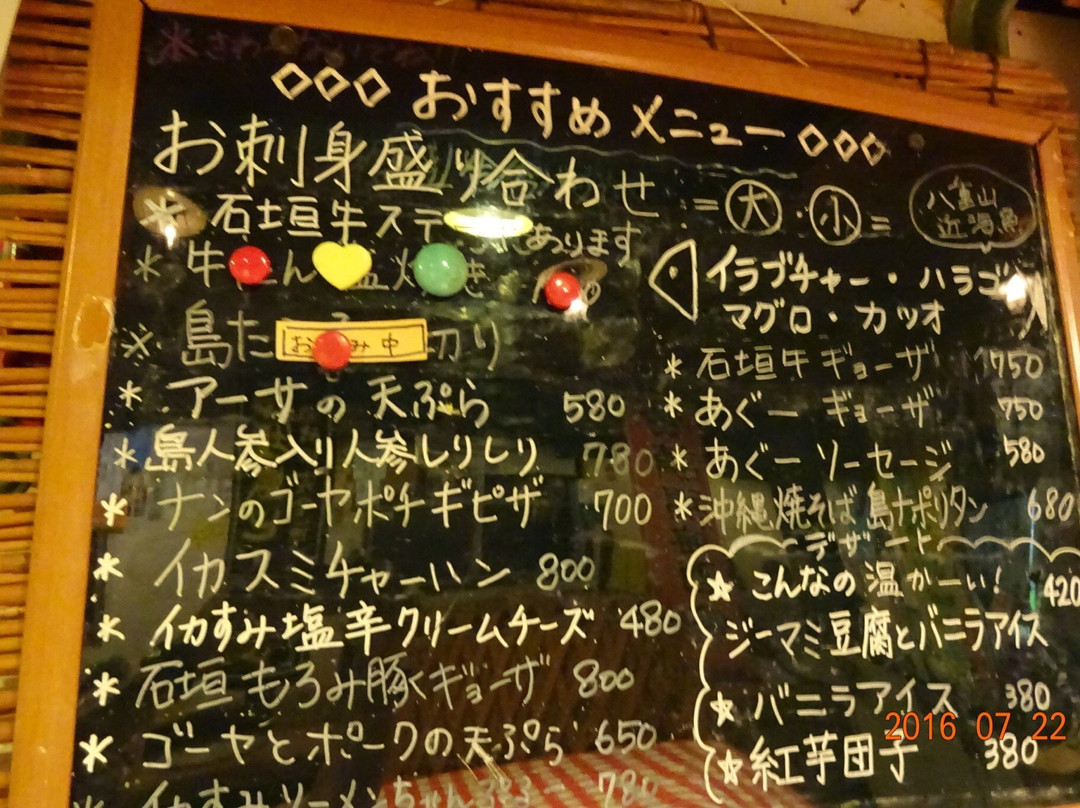 ◇◇◇ おすすめメニュー ◇◇◇
お刺身盛り合わせ =大・小=
八重山
近海魚
イラブチャー・ハラゴ
マグロ・カツオ
石垣牛ステ
あります
* 牛 ん 塩焼き
※ 島た 切り
み中
* アーサの天ぷら 580
* 島人参入り人参しりしり 780
* ナンのゴーヤポチギピザ 700
* イカスミチャーハン 800
* イカすみ塩辛クリームチーズ 480
* 石垣もろみ豚ギョーザ 800
* ゴーヤとポークの天ぷら 650
イカすみソーメンちゃんぷるー 780
* 石垣牛ギョーザ 1750
* あぐー ギョーザ 750
* あぐー ソーセージ 580
* 沖縄焼そば島ナポリタン 680
デザート
☆ こんなの温かーい! 420
ジーマミ豆腐とバニラアイス
☆ バニラアイス 380
☆ 紅芋団子 380
2016 07 22